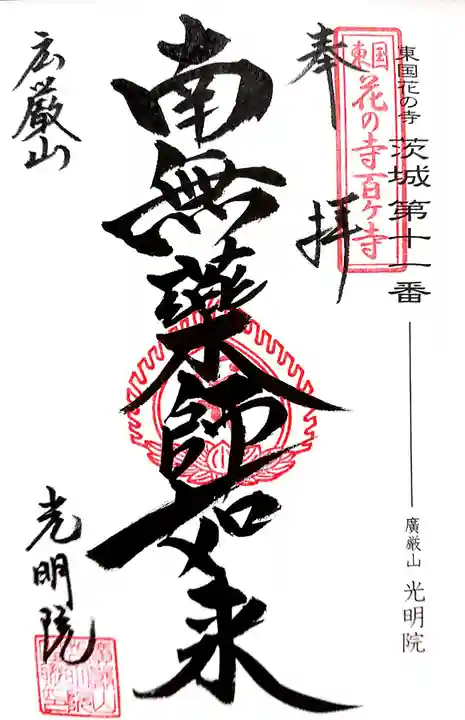 東国花の寺 茨城 第十一番
廣厳山 光明院
東国
花の寺百ヶ寺
奉拝
南無薬師如来
広巌山
光明院